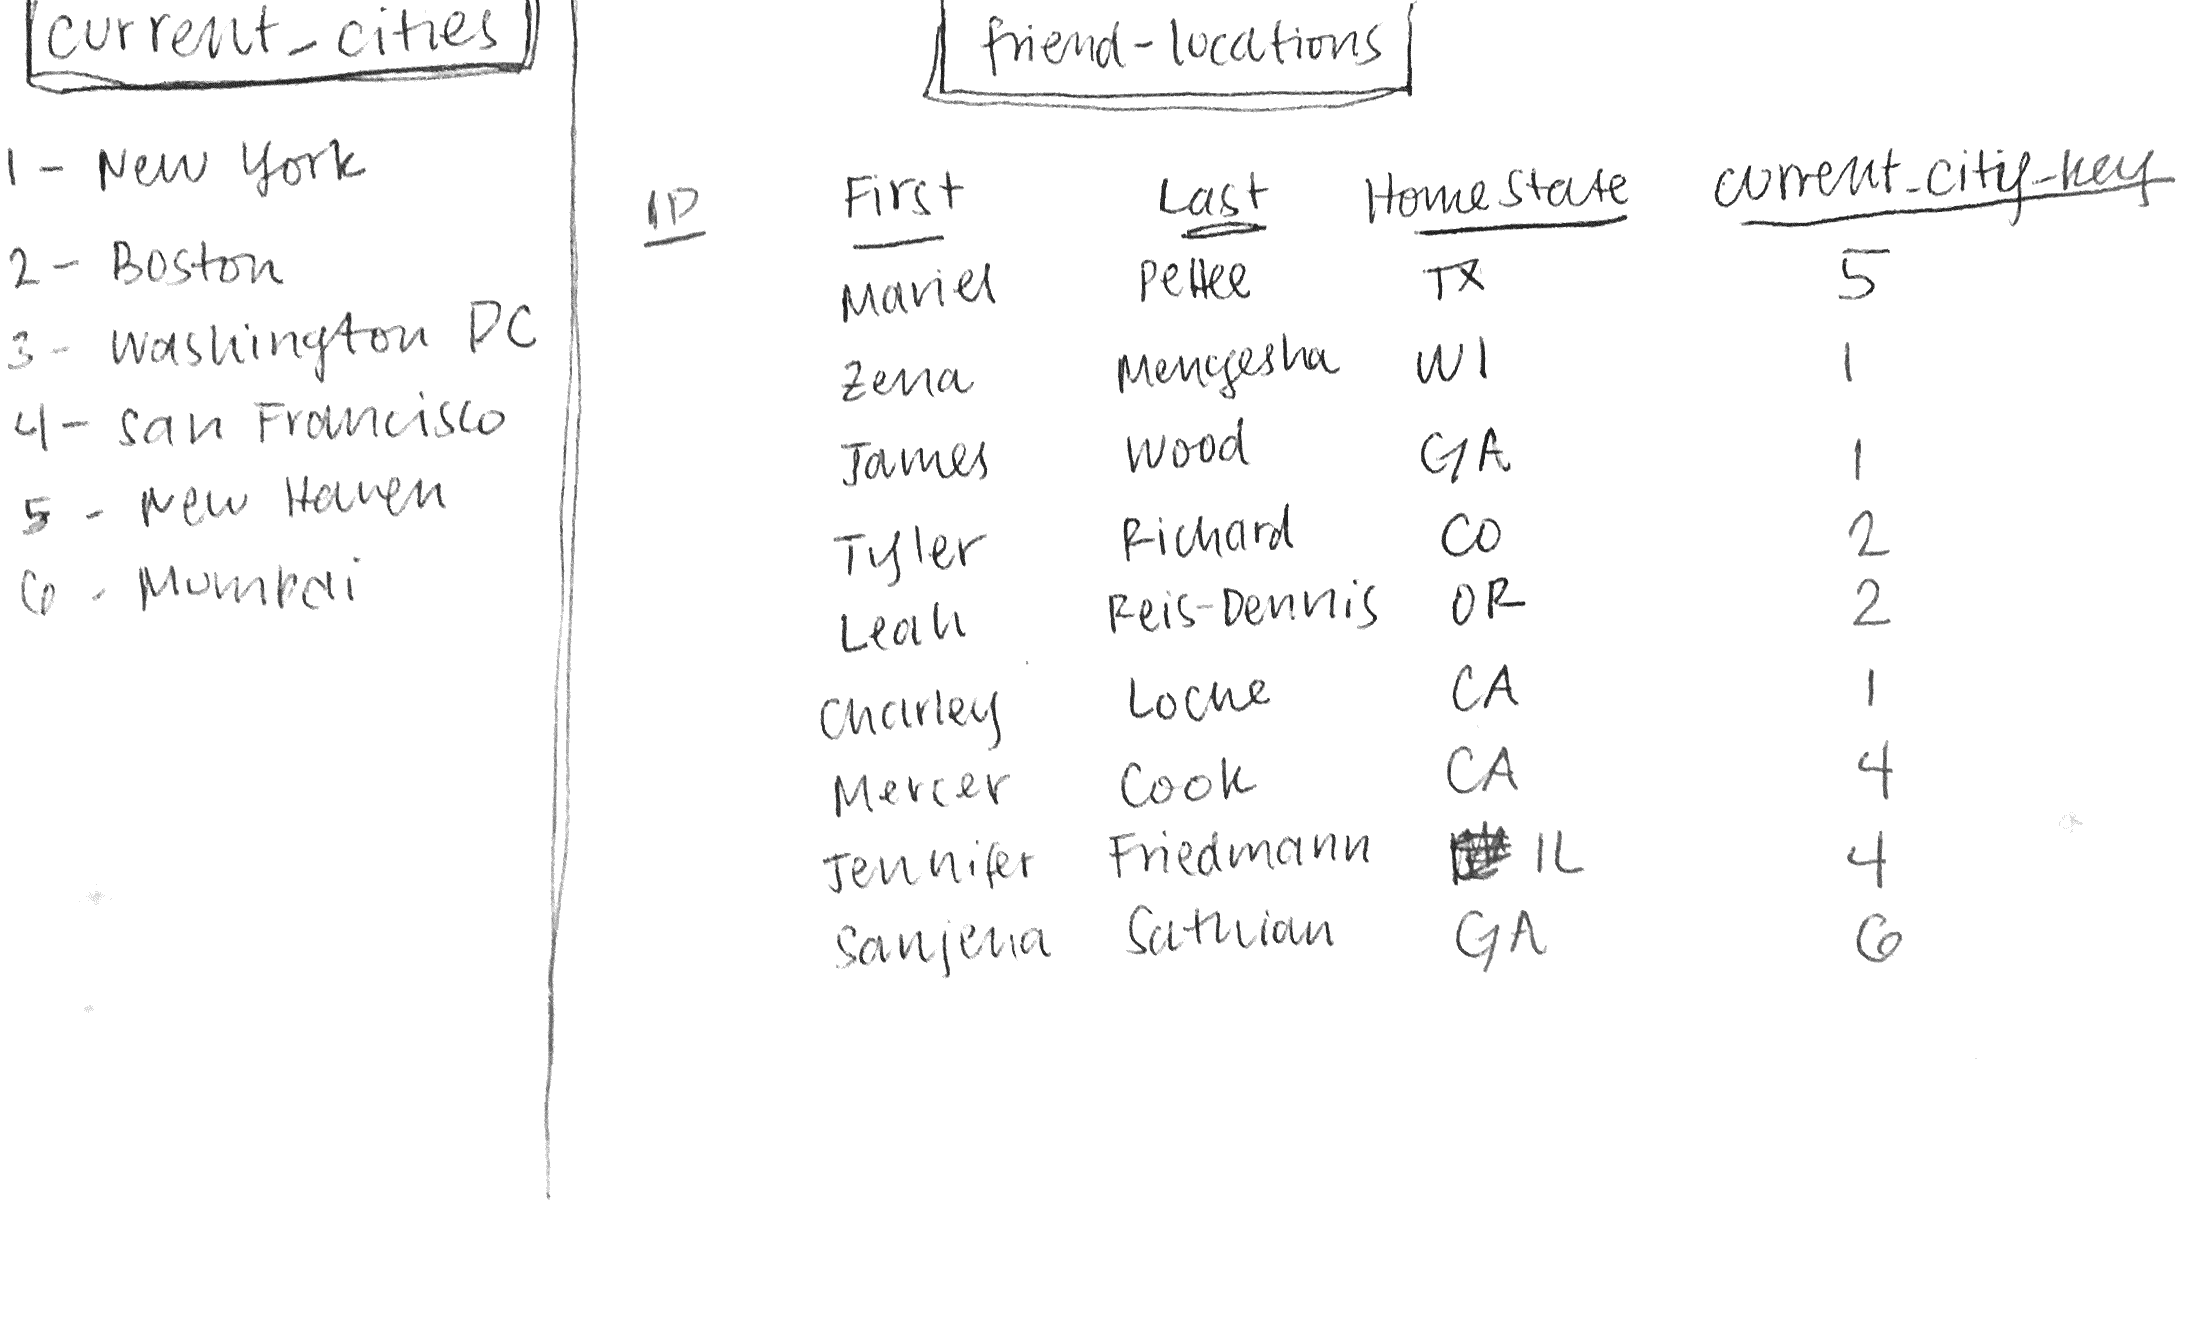 current_cities
1 - New York
2 - Boston
3 - Washington DC
4 - San Francisco
5 - New Haven
6 - Mumbai
friend-locations
ID First Last Home State current_city_key
Mariel Pettee TX 5
Zena Mengesha WI 1
James Wood GA 1
Tyler Richard CO 2
Leah Reis-Dennis OR 2
Charley Locke CA 1
Mercer Cook CA 4
Jennifer Friedmann IL 4
Sanjena Sathian GA 6